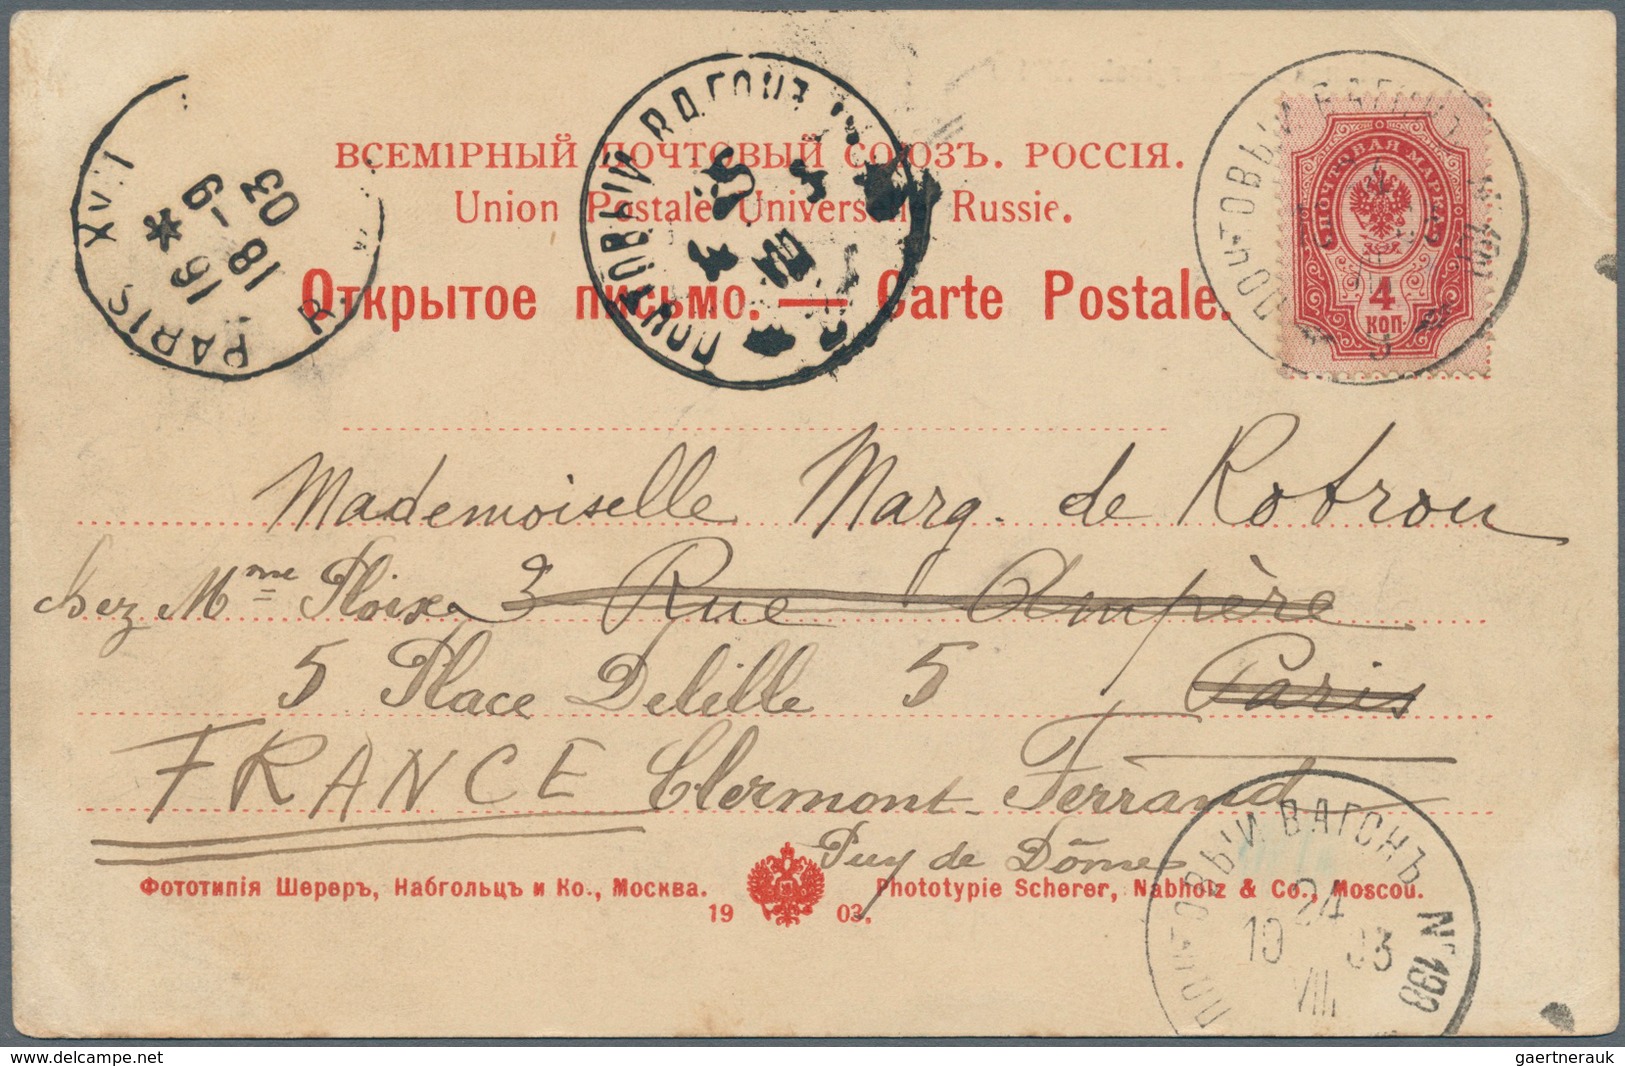 ВСЕМІРНЫЙ ПОЧТОВЫЙ СОЮЗЪ. РОССІЯ.
Union Postale Universelle Russie.
Открытое письмо. — Carte Postale.
PARIS XVII
16
18 -9
03
ПОЧТОВЫЙ ВАГОНЪ
ПОЧТОВЫЙ ВАГОНЪ
ПОЧТОВАЯ МАРКА
4
КОП.
Mademoiselle Marg. de Rotrou
chez Mme Ploix 3 Rue Ampère
5 Place Delille 5 Paris
FRANCE Clermont-Ferrand
Puy de Dôme
Фототипія Шереръ, Набгольцъ и Ко., Москва.
Phototypie Scherer, Nabholz & Co., Moscou.
19 03.
ПОЧТОВЫЙ ВАГОНЪ № 190
24
10 03
VIII
delcampe.net
gaertnerauk